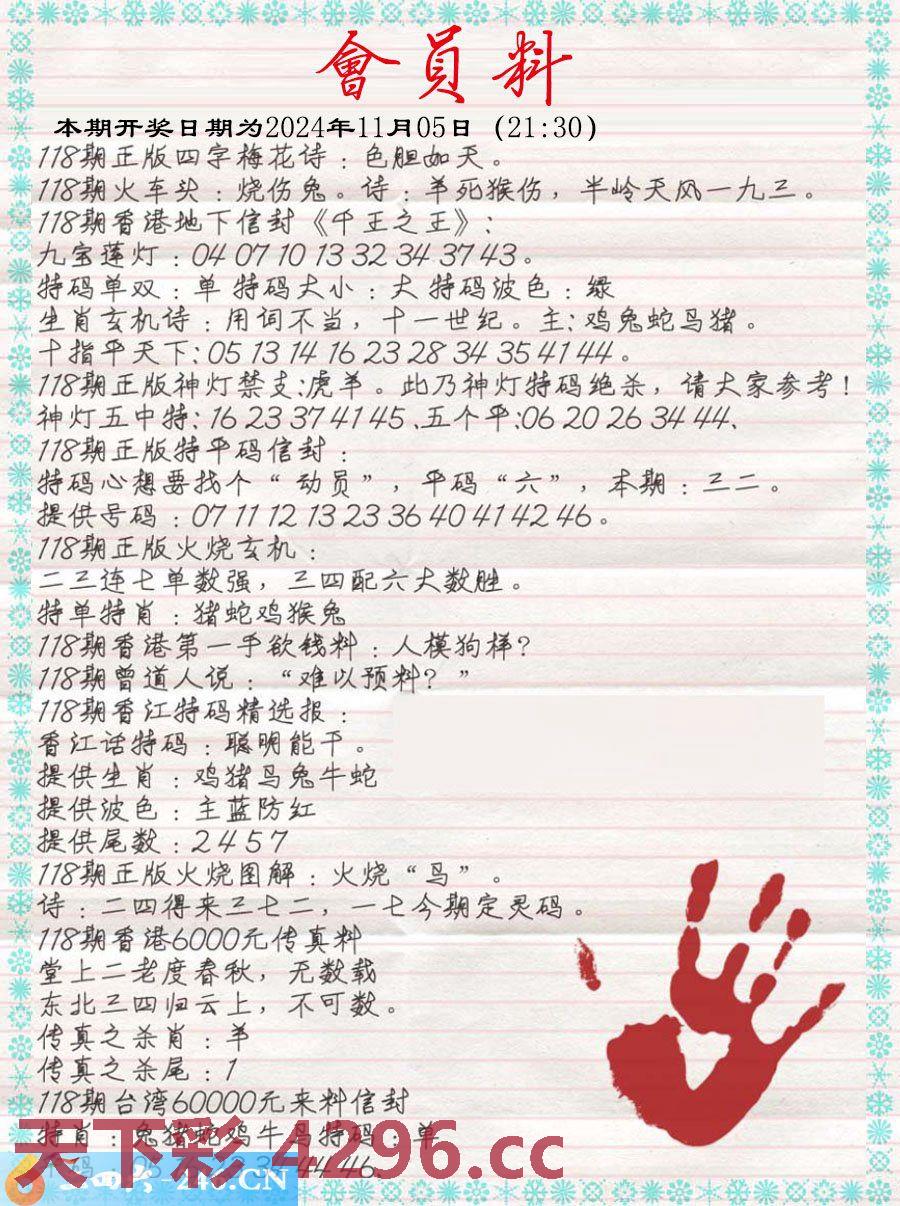 會員料
本期开奖日期为2024年11月05日（21:30）
118期正版四字梅花诗：色胆如天。
118期火车头：烧伤兔。诗：羊死猴伤，半岭天风一九三。
118期香港地下信封《千王之王》：
九宝莲灯：04 07 10 13 32 34 37 43。
特码单双：单 特码大小：大 特码波色：绿
生肖玄机诗：用词不当，十一世纪。主：鸡兔蛇马猪。
十指平天下：05 13 14 16 23 28 34 35 41 44。
118期正版神灯禁支:虎羊。此乃神灯特码绝杀，请大家参考！
神灯五中特：16 23 37 41 45、五个平:06 20 26 34 44、
118期正版特平码信封：
特码心想要找个“动员”，平码“六”，本期：三二。
提供号码：07 11 12 13 23 36 40 41 42 46。
118期正版火烧玄机：
二三连七单数强，三四配六大数胜。
特单特肖：猪蛇鸡猴兔
118期香港第一手欲钱料：人模狗样？
118期曾道人说：“难以预料？”
118期香江特码精选报：
香江话特码：聪明能干。
提供生肖：鸡猪马兔牛蛇
提供波色：主蓝防红
提供尾数：2 4 5 7
118期正版火烧图解：火烧“鸟”。
诗：二四得来三七二，一七今期定灵码。
118期香港6000元传真料
堂上二老度春秋，无数载
东北三四归云上，不可数。
传真之杀肖：羊
传真之杀尾：1
118期台湾60000元来料信封
特肖：兔猪蛇鸡牛马特码：单
44 46、
天下彩 4296.cc
246.CN